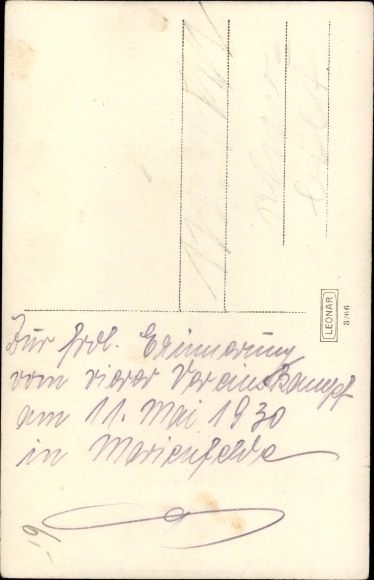 Zur frdl. Erinnerung
vom vierer Vereinskampf
am 11. Mai 1930
in Marienfelde
LEONAR